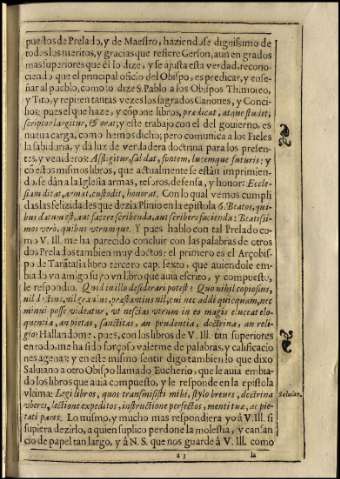 puestos de Prelado, y de Maestro, haziendose dignissimo de
todos los meritos, y gracias que refiere Gerson, aun en grados
mas superiores que èl lo dize, y se ajusta esta verdad, recono-
ciendo que el principal oficio del Obispo, es predicar, y ense-
ñar al pueblo, como lo dize S. Pablo a los Obispos Thimoteo,
y Tito, y repiten tantas vezes los sagrados Canones, y Conci-
lios; pues el que haze, y cõpone libros, prædicat,
scriptor largitur, & orat; y este trabajo con el del govierno, es
nueva carga, como hemos dicho; pero comunica a los Fieles
la sabiduria, y dà luz de verdadera doctrina para los presen-
tes, y venideros: fontem, lucemque futuris; y
cõ estos mismos libros, que actualmente se estàn imprimien-
do, se dàn a la Iglesia armas, tesoros, defensa, y honor: Eccle-
siam ditat, armat, custodit, honorat. Con lo qual vemos cumpli
das las felizidades que dezia Plinio en la epistola 6. Beatos, qui-
bus datum est, aut facere scribenda, aut scribere facienda: Beatissi-
mos verò, quibus utrumque. Y pues hablo con tal Prelado co-
mo V. Ill. me ha parecido concluir con las palabras de otros
dos Prelados tambien muy doctos: el primero es el Arçobis-
po de Tarãtasia libro tercero cap. sexto, que aviendole em-
biado vn amigo suyo vn libro que avia escrito, y compuesto,
le respondio. Quid in illo desiderari potest? Quo nihil copiosius,
nil divinius, nil gravius, præstantius nil, cui nec addi quicquam, nec
minui posse videatur, vt nescias vtrum in eo magis eluceat elo-
quentia, an pietas, sanctitas, an prudentia, doctrina, an reli-
gio? Hallandome, pues, con los libros de V. Ill. tan superiores
en todo, me ha sido forçoso valerme de palabras, y calificacio
nes agenas; y en este mismo sentir digo tambien lo que dixo
Salviano a otro Obispo llamado Eucherio, que le avia embia-
do los libros que avia compuesto, y le responde en la epistola
vltima: Legi libros, quos transmisisti mihi, stylo breves, doctrina
vberes, lectione expeditos, instructione perfectos, menti tuæ, ac pie-
tati pares. Lo mismo, y mucho mas respondiera yo à V. Ill. si
supiera dezirlo, a quien suplico perdone la molestia, y cansan
cio de papel tan largo, y à N. S. que nos guarde à V. Ill. como
Salvian.
a 3
la